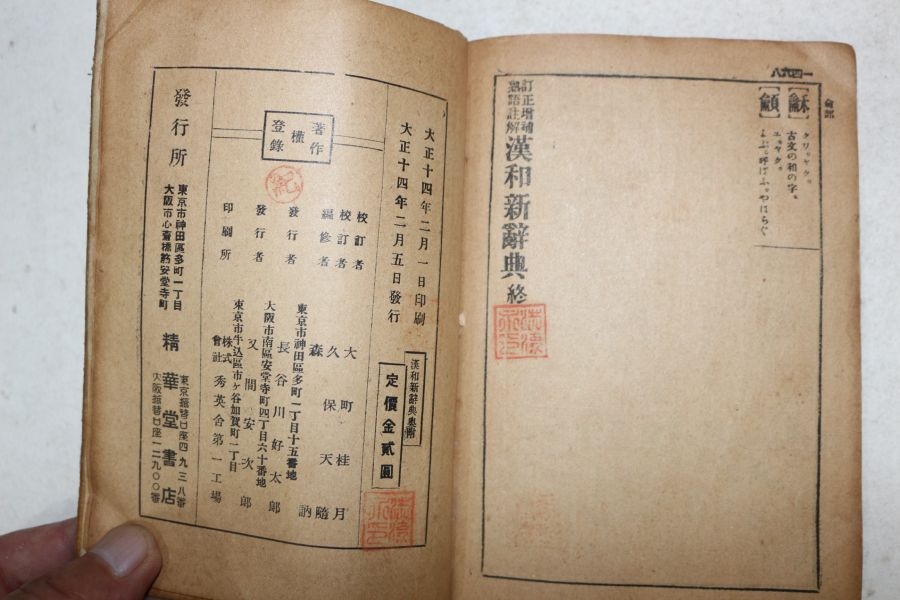 一四六八
龠部
【龢】
クワ。ヤク。
古文の和の字。
【龥】
ユ。ヤク。
よぶ。呼ばふ。やはらぐ
訂正增補
熟語註解
漢和新辭典 終
大正十四年二月一日印刷
大正十四年二月五日發行
漢和新辭典奧附
定價金貳圓
著作
權
登錄
校訂者 大町桂月
校訂者 久保天隨
編修者 森訥
東京市神田區多町一丁目十五番地
發行者 長谷川好太郎
大阪市南區安堂寺町四丁目六十番地
發行者 又間安次郎
東京市牛込區市ヶ谷加賀町一丁目
印刷所 株式會社 秀英舍第一工場
發行所
東京市神田區多町一丁目
大阪市心齋橋筋安堂寺町
精華堂書店
東京振替口座四九三八番
大阪振替口座一二九〇〇番